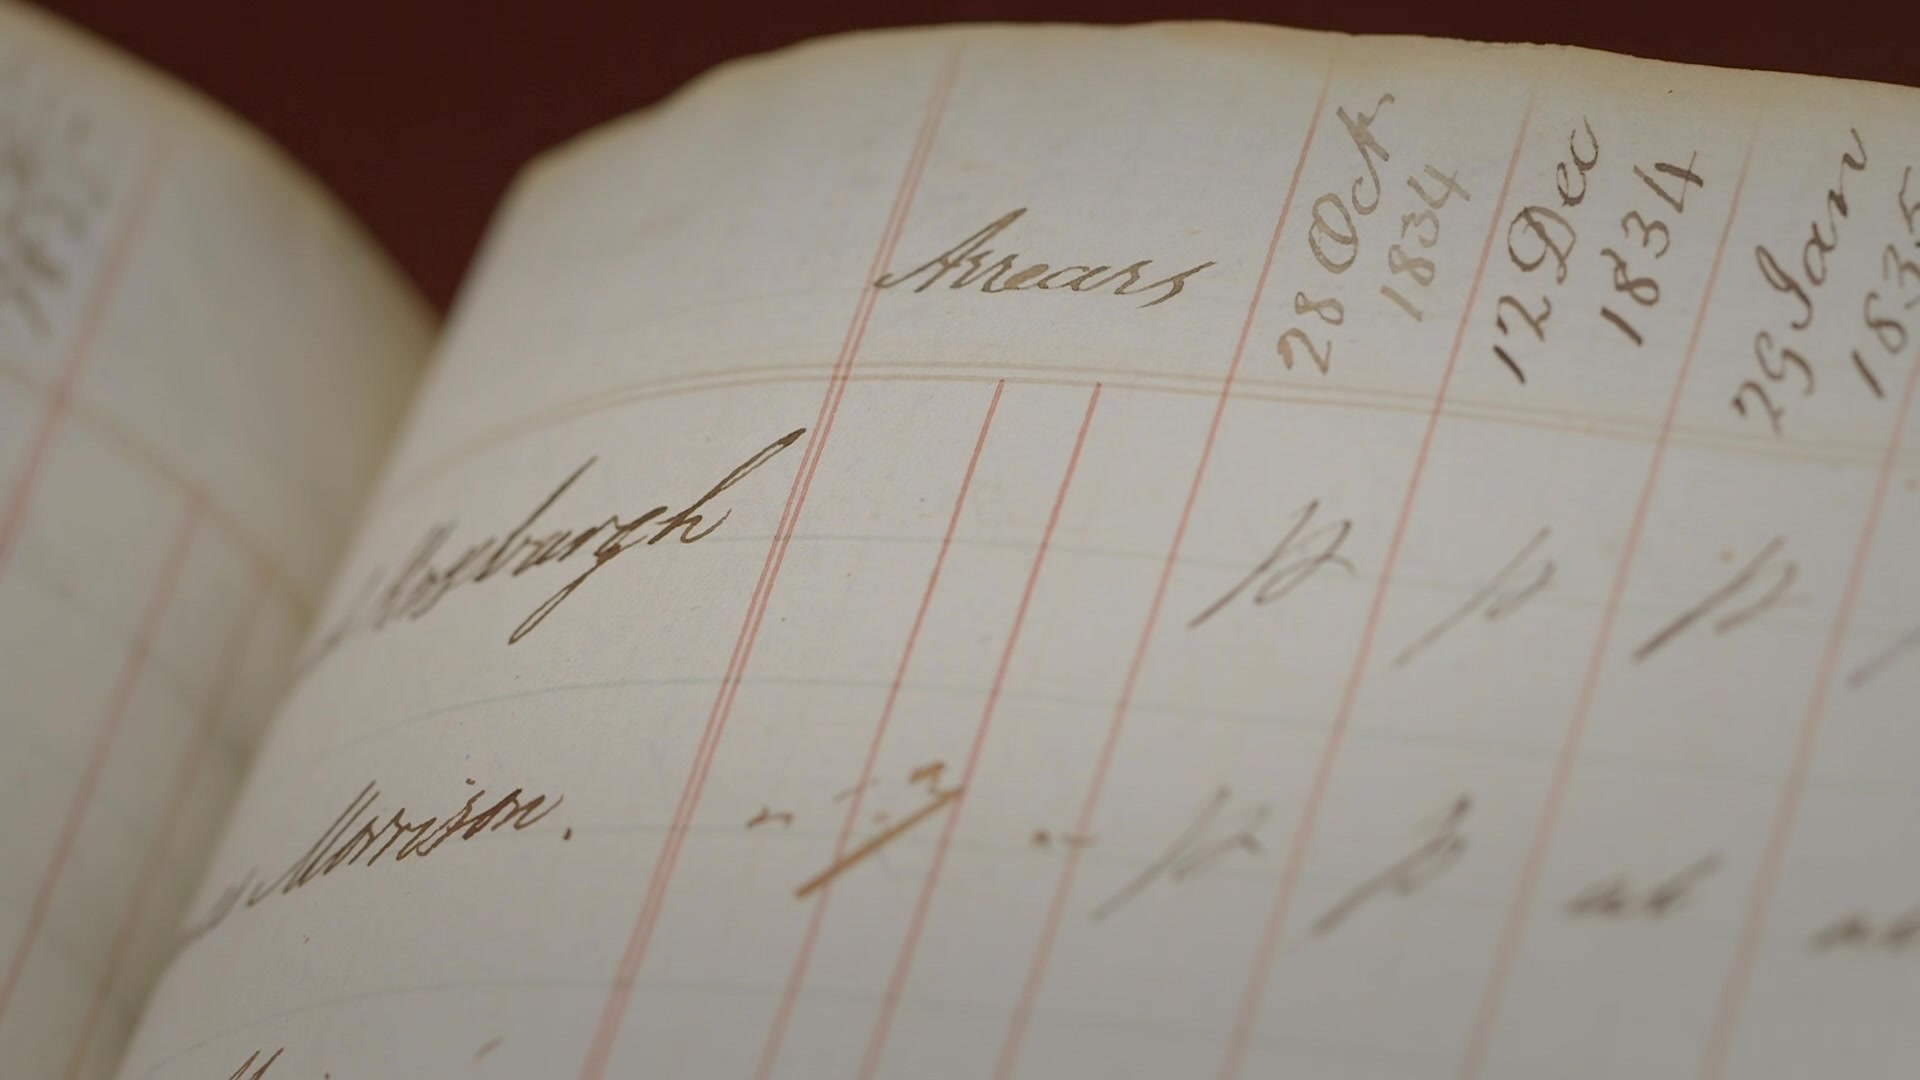 Arrears
28 Oct
1834
12 Dec
1834
29 Jan
1835
Roxburgh p p p
Morrison. - - 3 - p p ab ab